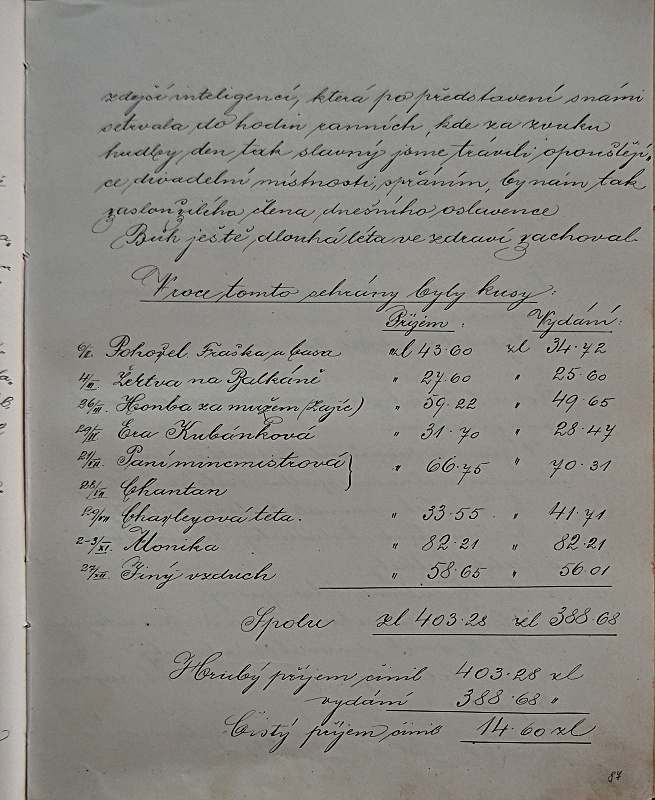 zdejší inteligencí, která po představení s námi
setrvala do hodin ranních, kde za zvuku
hudby den tak slavný jsme trávili opouštějí-
ce divadelní místnosti, s přáním, by nám tak
zasloužilého člena dnešního oslavence
Bůh ještě dlouhá léta ve zdraví zachoval.
V roce tomto sehrány byly kusy:
Příjem: Vydání:
Pohořel. Fraška u Casa zl 43·60 zl 34·72
4/III. Žertva na Balkáně " 27.60 " 25·60
26/III. Honba za mužem (Zajíc) " 59.22 " 49·65
Eva Kubánková " 31·70 " 28·47
Paní mincmistrová } " 66·75 " 70·31
Chantan
Charleyová teta. " 33·55 " 41·71
2-3/XI. Monika " 82·21 " 82·21
27/XII. Jiný vzduch " 58·65 " 56·01
Spolu zl 403·28 zl 388·68
Hrubý příjem činil 403·28 zl
vydání 388·68 "
Čistý příjem činil 14·60 zl
87